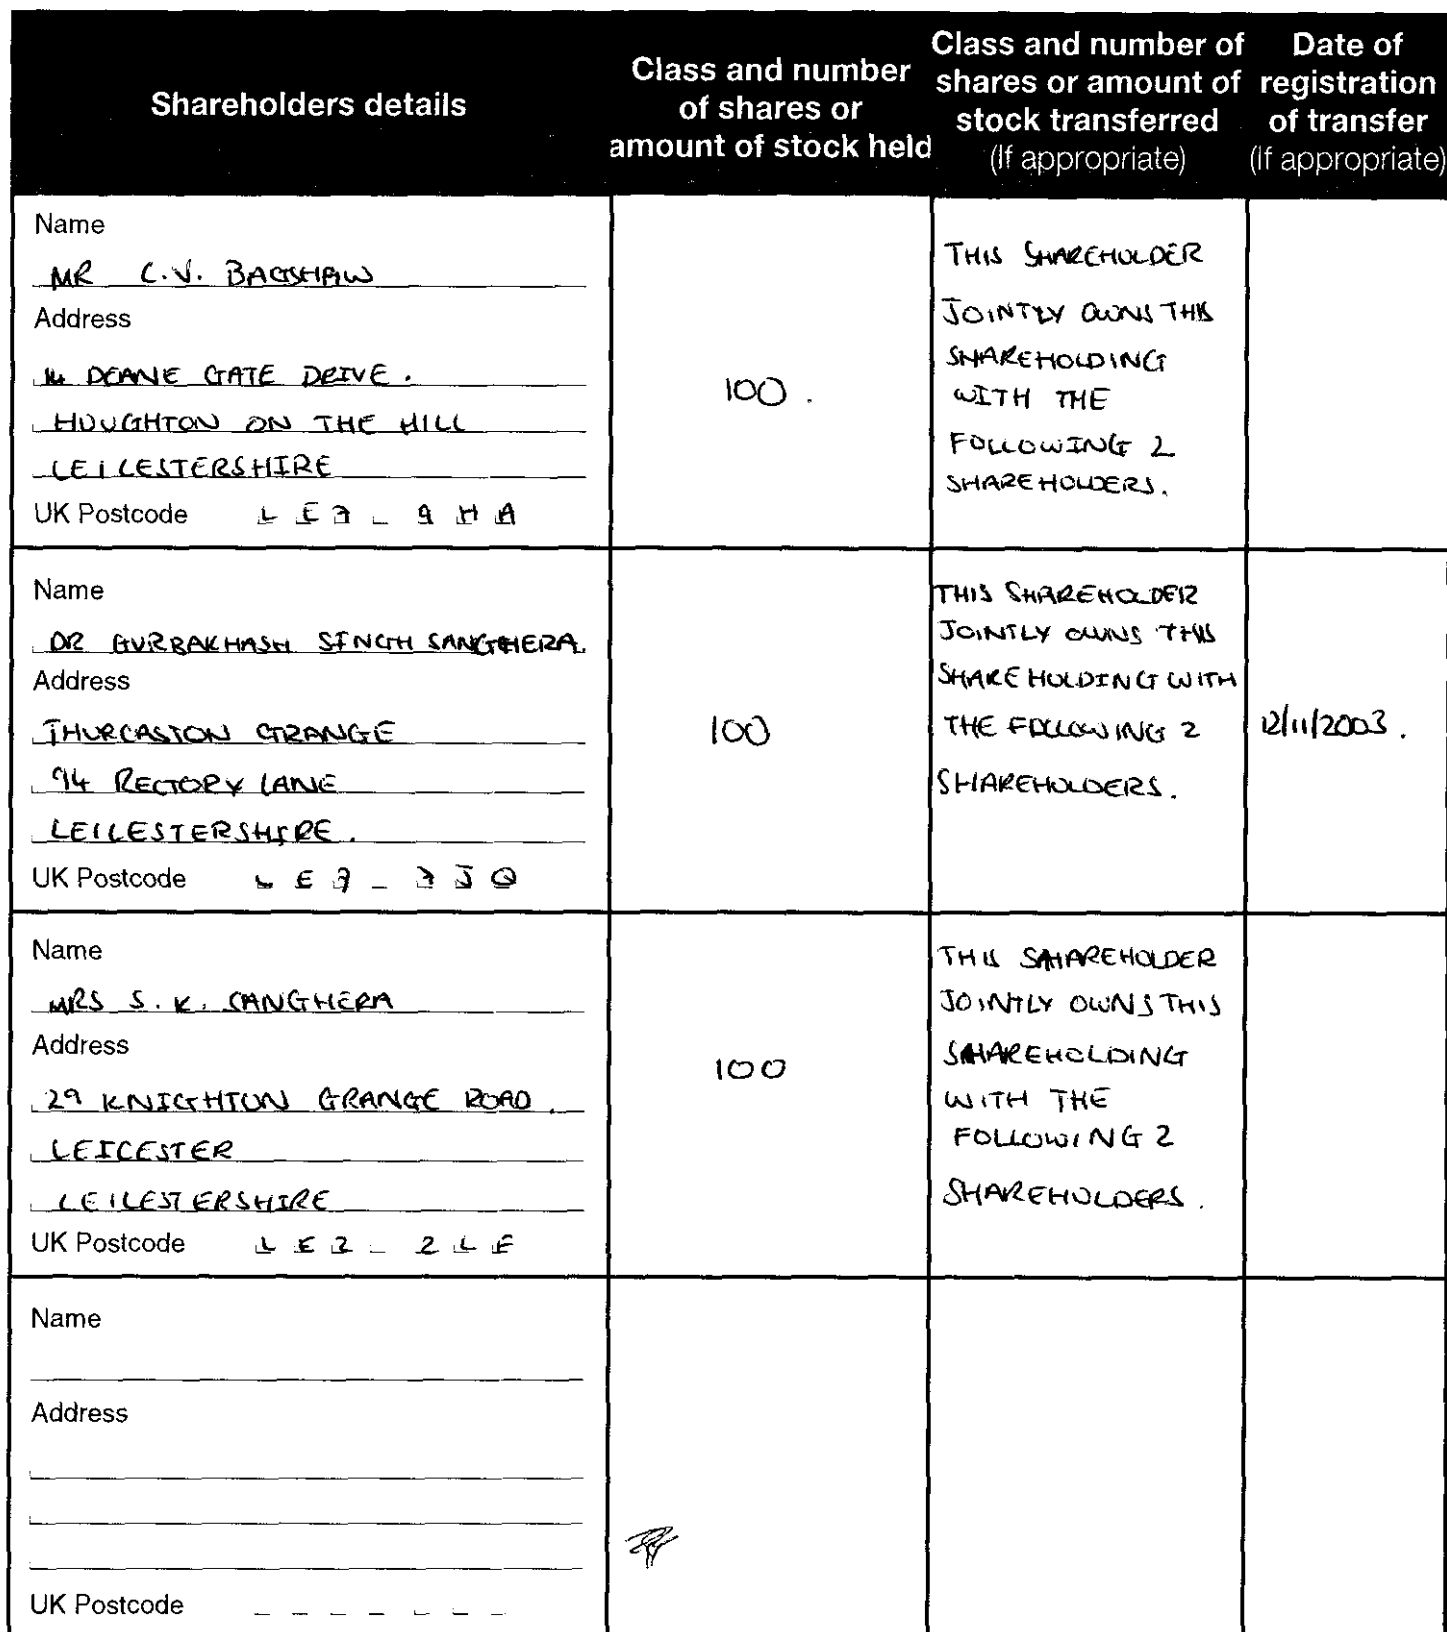 Shareholders details
Class and number
of shares or
amount of stock held
Class and number of
shares or amount of
stock transferred
(If appropriate)
Date of
registration
of transfer
(If appropriate)
Name
MR C.V. BAGSHAW
Address
14 DEANE GATE DRIVE.
HOUGHTON ON THE HILL
LEICESTERSHIRE
UK Postcode LE7 _ 9HA
100.
THIS SHAREHOLDER
JOINTLY OWNS THIS
SHAREHOLDING
WITH THE
FOLLOWING 2
SHAREHOLDERS.
Name
DR GURBAKHASH SINGH SANGHERA.
Address
THURCASTON GRANGE
94 RECTORY LANE
LEICESTERSHIRE.
UK Postcode LE7 _ 7JQ
100
THIS SHAREHOLDER
JOINTLY OWNS THIS
SHAREHOLDING WITH
THE FOLLOWING 2
SHAREHOLDERS.
12/11/2003.
Name
MRS S.K. SANGHERA
Address
29 KNIGHTON GRANGE ROAD.
LEICESTER
LEICESTERSHIRE
UK Postcode LE2 _ 2LF
100
THIS SHAREHOLDER
JOINTLY OWNS THIS
SHAREHOLDING
WITH THE
FOLLOWING 2
SHAREHOLDERS.
Name
Address
UK Postcode _ _ _ _ _ _ _